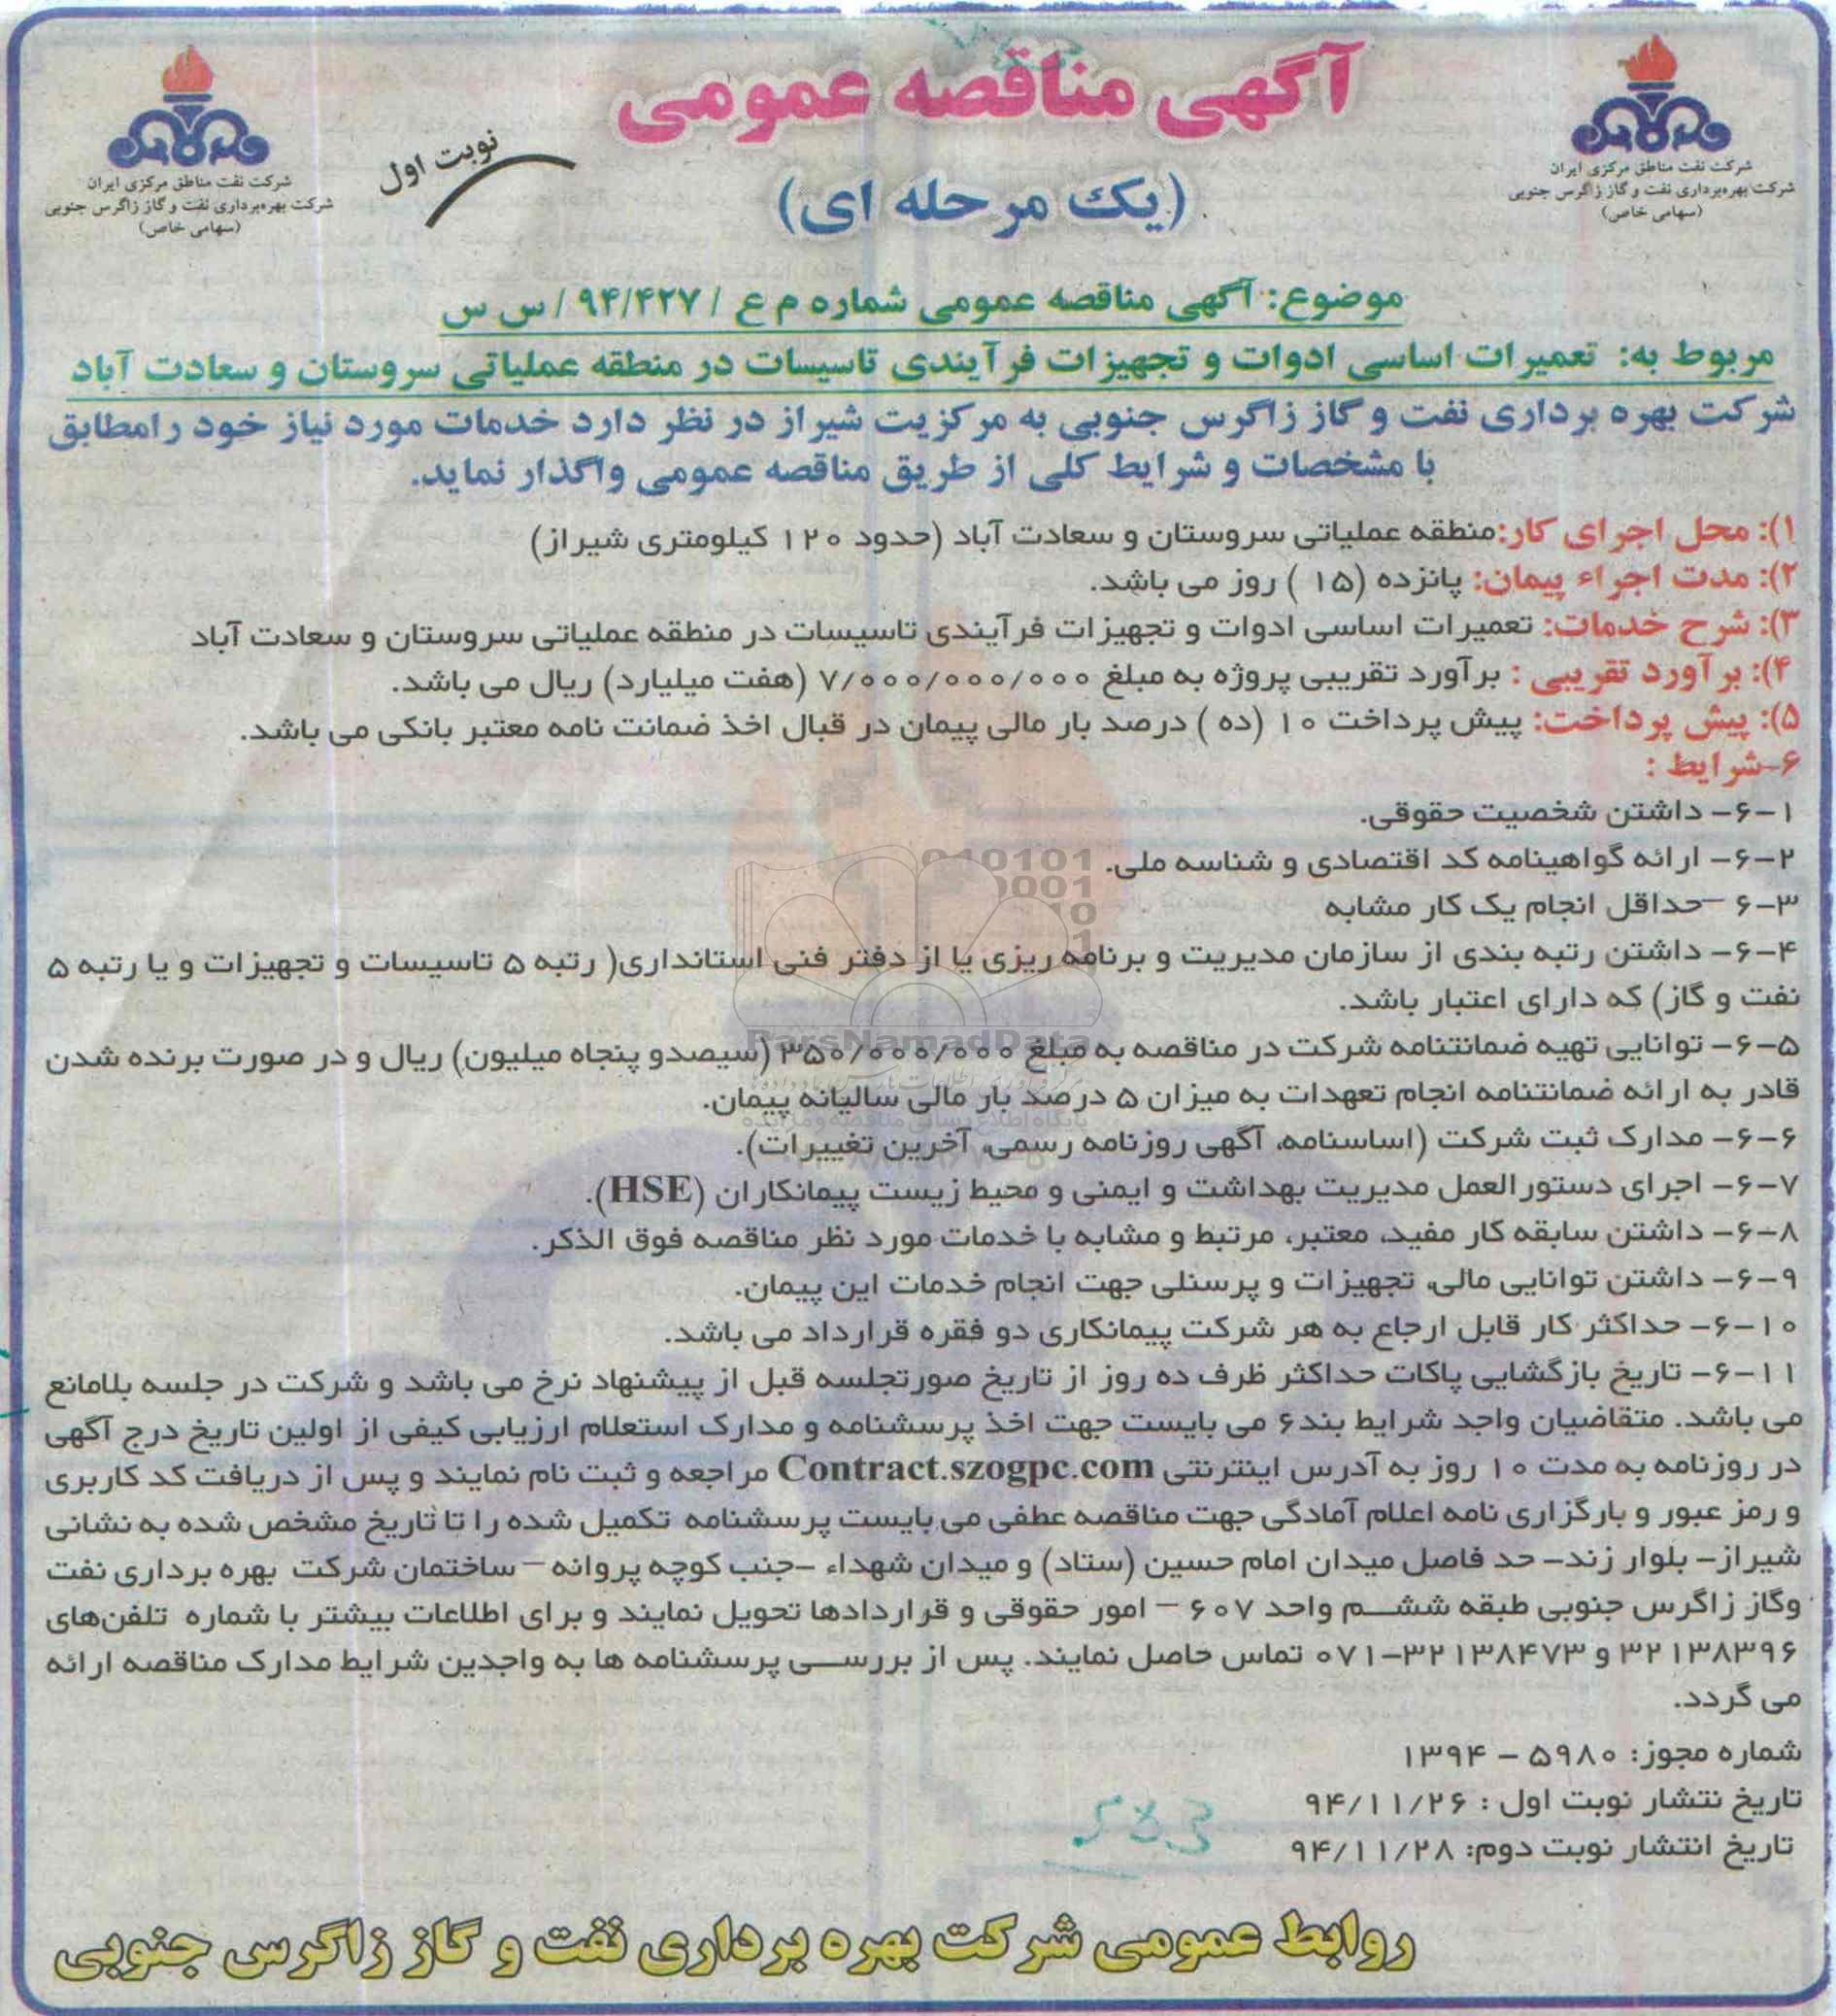 آگهی مناقصه عمومی
(یک مرحله ای)
نوبت اول
شرکت نفت مناطق مرکزی ایران
شرکت بهره‌برداری نفت و گاز زاگرس جنوبی
(سهامی خاص)
شرکت نفت مناطق مرکزی ایران
شرکت بهره‌برداری نفت و گاز زاگرس جنوبی
(سهامی خاص)
موضوع: آگهی مناقصه عمومی شماره م ع / ۹۴/۴۲۷ / س س
مربوط به: تعمیرات اساسی ادوات و تجهیزات فرآیندی تاسیسات در منطقه عملیاتی سروستان و سعادت آباد
شرکت بهره برداری نفت و گاز زاگرس جنوبی به مرکزیت شیراز در نظر دارد خدمات مورد نیاز خود رامطابق
با مشخصات و شرایط کلی از طریق مناقصه عمومی واگذار نماید.
۱): محل اجرای کار:منطقه عملیاتی سروستان و سعادت آباد (حدود ۱۲۰ کیلومتری شیراز)
۲): مدت اجراء پیمان: پانزده (۱۵ ) روز می باشد.
۳): شرح خدمات: تعمیرات اساسی ادوات و تجهیزات فرآیندی تاسیسات در منطقه عملیاتی سروستان و سعادت آباد
۴): برآورد تقریبی : برآورد تقریبی پروژه به مبلغ ۷/۰۰۰/۰۰۰/۰۰۰ (هفت میلیارد) ریال می باشد.
۵): پیش پرداخت: پیش پرداخت ۱۰ (ده ) درصد بار مالی پیمان در قبال اخذ ضمانت نامه معتبر بانکی می باشد.
۶-شرایط :
۶-۱- داشتن شخصیت حقوقی.
۶-۲- ارائه گواهینامه کد اقتصادی و شناسه ملی.
۶-۳ -حداقل انجام یک کار مشابه
۶-۴- داشتن رتبه بندی از سازمان مدیریت و برنامه ریزی یا از دفتر فنی استانداری( رتبه ۵ تاسیسات و تجهیزات و یا رتبه ۵
نفت و گاز) که دارای اعتبار باشد.
۶-۵- توانایی تهیه ضمانتنامه شرکت در مناقصه به مبلغ ۳۵۰/۰۰۰/۰۰۰ (سیصدو پنجاه میلیون) ریال و در صورت برنده شدن
قادر به ارائه ضمانتنامه انجام تعهدات به میزان ۵ درصد بار مالی سالیانه پیمان.
۶-۶- مدارک ثبت شرکت (اساسنامه، آگهی روزنامه رسمی، آخرین تغییرات).
۶-۷- اجرای دستورالعمل مدیریت بهداشت و ایمنی و محیط زیست پیمانکاران (HSE).
۶-۸- داشتن سابقه کار مفید، معتبر، مرتبط و مشابه با خدمات مورد نظر مناقصه فوق الذکر.
۶-۹- داشتن توانایی مالی، تجهیزات و پرسنلی جهت انجام خدمات این پیمان.
۶-۱۰- حداکثر کار قابل ارجاع به هر شرکت پیمانکاری دو فقره قرارداد می باشد.
۶-۱۱- تاریخ بازگشایی پاکات حداکثر ظرف ده روز از تاریخ صورتجلسه قبل از پیشنهاد نرخ می باشد و شرکت در جلسه بلامانع
می باشد. متقاضیان واجد شرایط بند۶ می بایست جهت اخذ پرسشنامه و مدارک استعلام ارزیابی کیفی از اولین تاریخ درج آگهی
در روزنامه به مدت ۱۰ روز به آدرس اینترنتی Contract.szogpc.com مراجعه و ثبت نام نمایند و پس از دریافت کد کاربری
و رمز عبور و بارگزاری نامه اعلام آمادگی جهت مناقصه عطفی می بایست پرسشنامه تکمیل شده را تا تاریخ مشخص شده به نشانی
شیراز- بلوار زند- حد فاصل میدان امام حسین (ستاد) و میدان شهداء -جنب کوچه پروانه - ساختمان شرکت بهره برداری نفت
وگاز زاگرس جنوبی طبقه ششم واحد ۶۰۷ - امور حقوقی و قراردادها تحویل نمایند و برای اطلاعات بیشتر با شماره تلفن‌های
۳۲۱۳۸۳۹۶ و ۳۲۱۳۸۴۷۳-۰۷۱ تماس حاصل نمایند. پس از بررسی پرسشنامه ها به واجدین شرایط مدارک مناقصه ارائه
می گردد.
شماره مجوز: ۵۹۸۰ - ۱۳۹۴
تاریخ نتشار نوبت اول : ۹۴/۱۱/۲۶
تاریخ انتشار نوبت دوم: ۹۴/۱۱/۲۸
روابط عمومی شرکت بهره برداری نفت و گاز زاگرس جنوبی
ParsNamadData